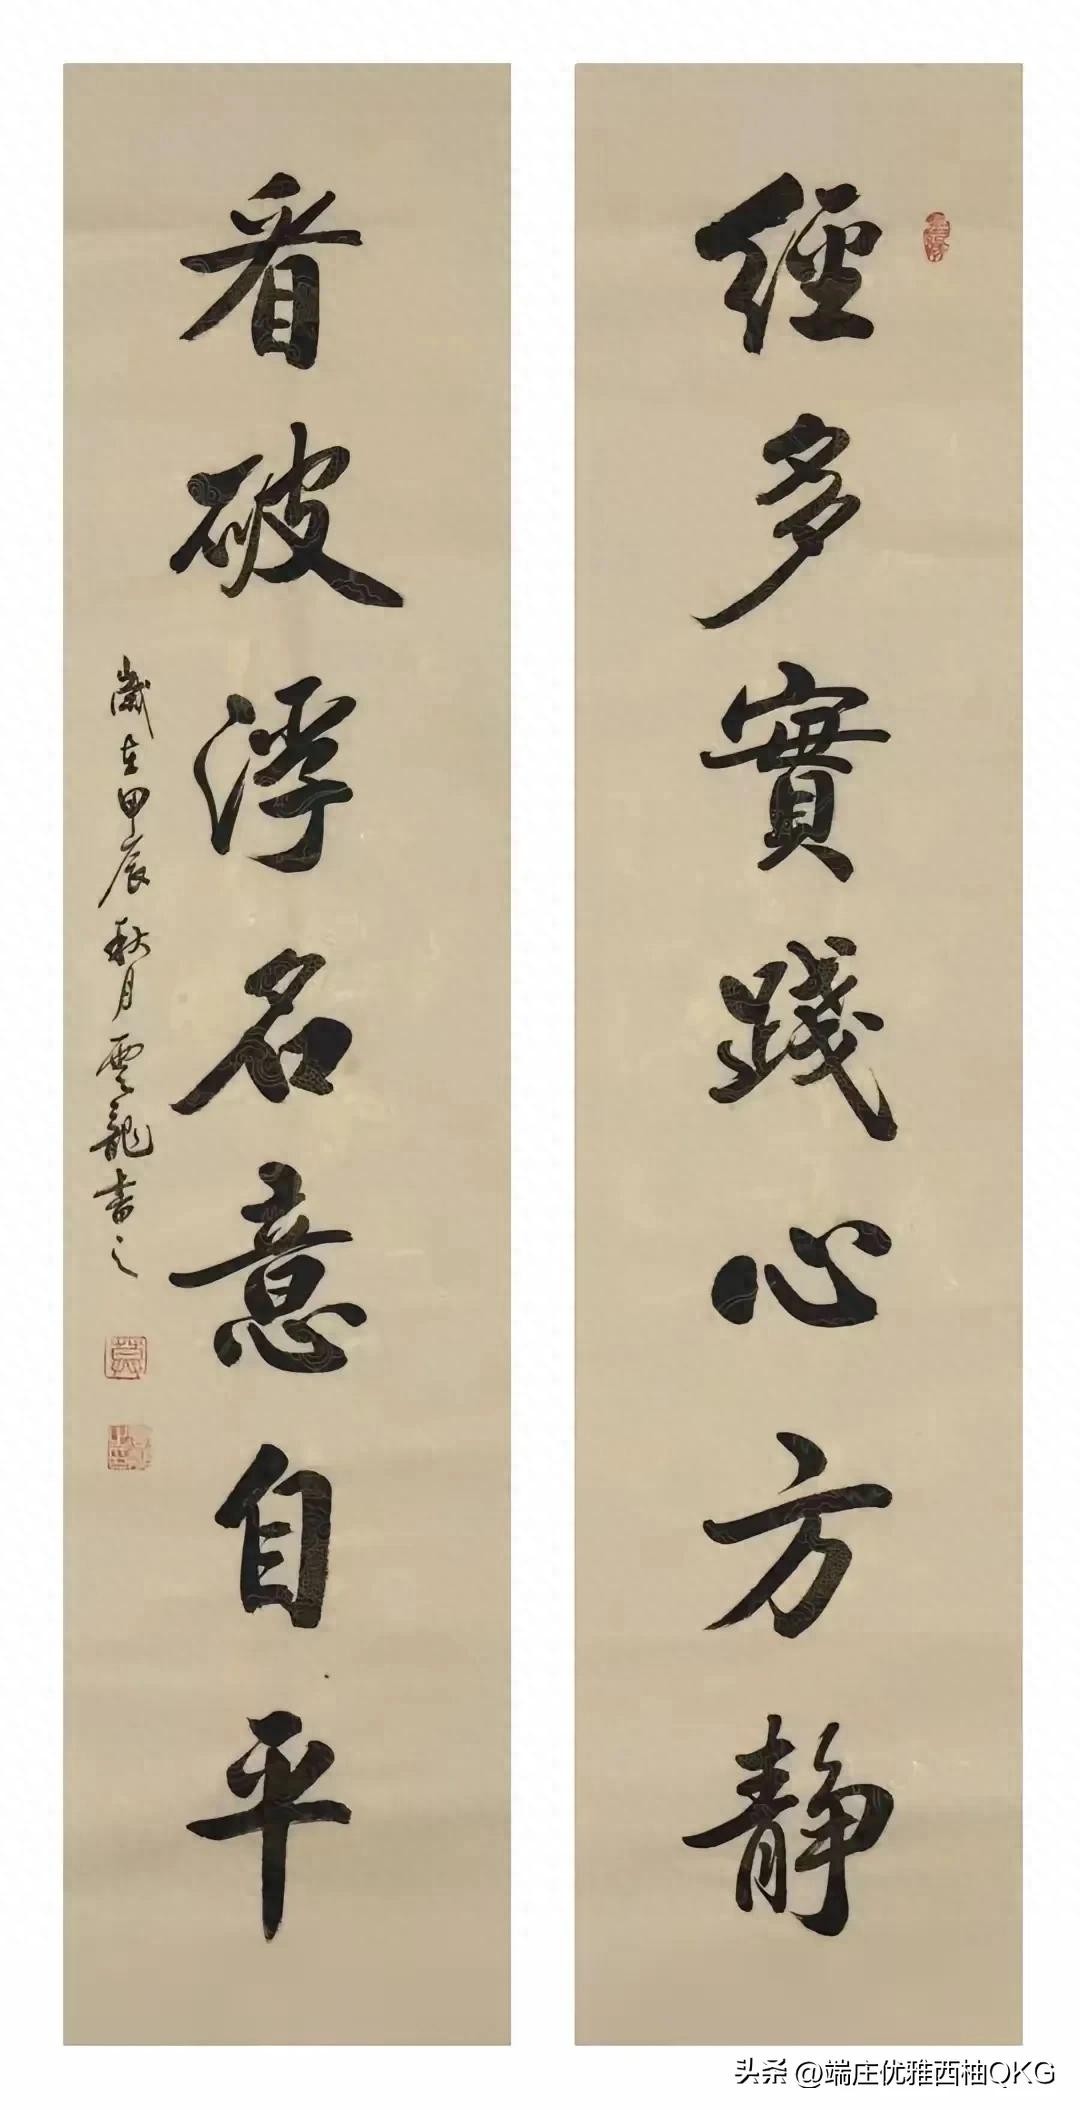 經多實踐心方静
看破浮名意自平
歲在甲辰秋月雲龍書之
头条 @端庄优雅西柚QKG